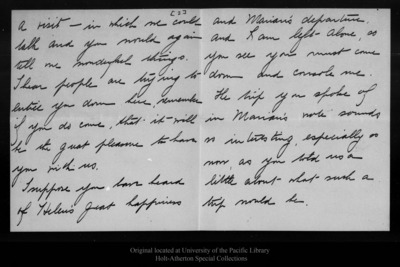 a visit — in which we could
talk and you would again
tell me wonderful things.
I hear people are trying to
entice you down here, remember
if you do come, that it will
be the great pleasure to have
you with us.
I suppose you have heard
of Helen's great happiness
and Marian's departure.
and I am left alone, so
you see you must come
down and console me.
The trip you spoke of
in Marian's note sounds
so interesting, especially as
now, as you told us a
little about what such a
trip would be.
Original located at University of the Pacific Library
Holt-Atherton Special Collections